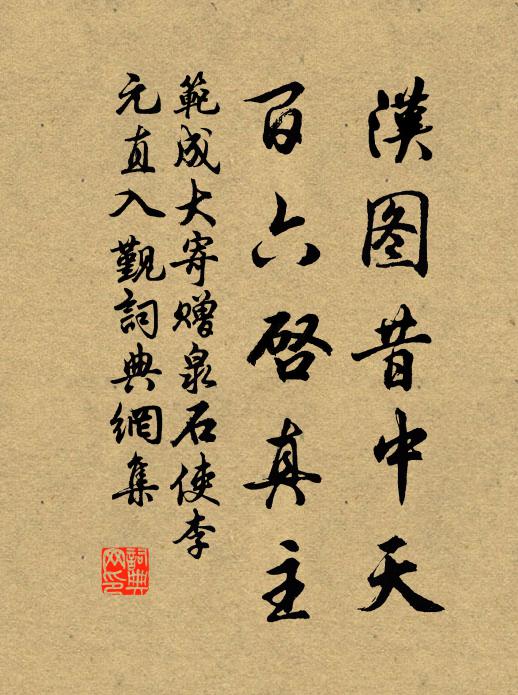 漢图昔中天
百六啓真主
範成大寄赠泉石使李
元直入觀詞典網集
詞典网印